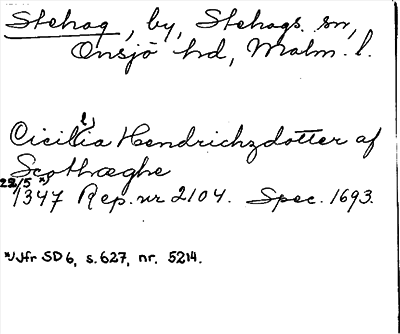 Stehag, by, Stehags sn,
Onsjö hd, Malm. l.
Cicil(l)ia Hendrichzdotter af
Scothæghe
22/5 *) 1347 Rep. nr 2104. Spec. 1693.
*) Jfr SD 6, s. 627, nr. 5214.